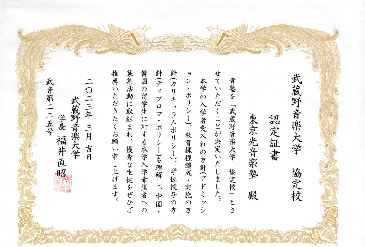 武蔵野音楽大学 協定校
認定証書
東京光音楽塾 殿
貴塾を「武蔵野音楽大学 協定校」とさ
せていただくことが決定いたしました。
本学の入学者受入れの方針(アドミッシ
ョン・ポリシー)、教育課程編成・実施の方
針(カリキュラムポリシー)、学位授与の方
針(ディプロマ・ポリシー)を理解し、中国・
韓国の留学生に対する本学入学希望者への
募集活動に取組まれ、優秀な生徒をぜひご
推薦いただきたくお願い申し上げます。
二〇二三年 三月 吉日
武蔵野音楽大学
学長 福井直昭
武音第二二五号